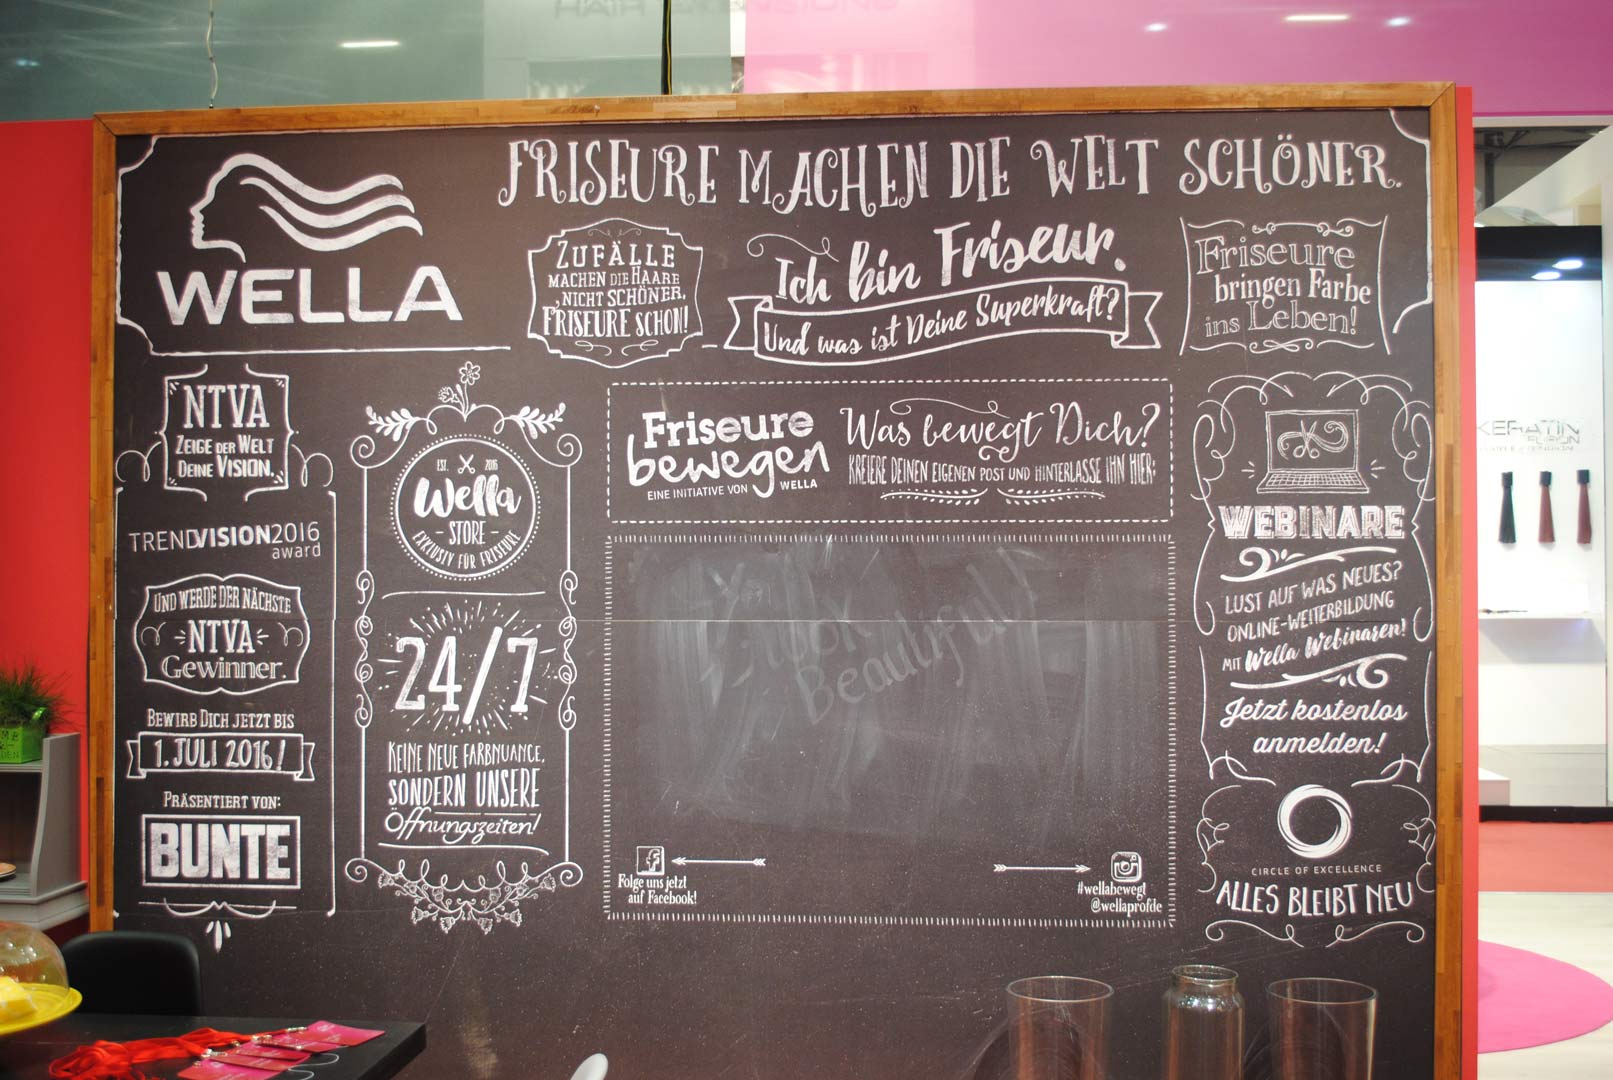 HAIR EXTENSIONS
FRISEURE MACHEN DIE WELT SCHÖNER.
WELLA
ZUFÄLLE
MACHEN DIE HAARE
NICHT SCHÖNER,
FRISEURE SCHON!
Ich bin Friseur.
Und was ist Deine Superkraft?
Friseure
bringen Farbe
ins Leben!
NTVA
ZEIGE DER WELT
DEINE VISION.
TRENDVISION2016
award
UND WERDE DER NÄCHSTE
NTVA
Gewinner.
BEWIRB DICH JETZT BIS
1. JULI 2016!
PRÄSENTIERT VON:
BUNTE
EST. 2016
Wella
STORE
EXKLUSIV FÜR FRISEURE
24/7
KEINE NEUE FARBNUANCE,
SONDERN UNSERE
Öffnungszeiten!
Friseure
bewegen
EINE INITIATIVE VON WELLA
Was bewegt Dich?
KREIERE DEINEN EIGENEN POST UND HINTERLASSE IHN HIER:
look
Beautiful!
Folge uns jetzt
auf Facebook!
#wellabewegt
@wellaprofde
WEBINARE
LUST AUF WAS NEUES?
ONLINE-WEITERBILDUNG
MIT Wella Webinaren!
Jetzt kostenlos
anmelden!
CIRCLE OF EXCELLENCE
ALLES BLEIBT NEU
KERATIN
FUSION